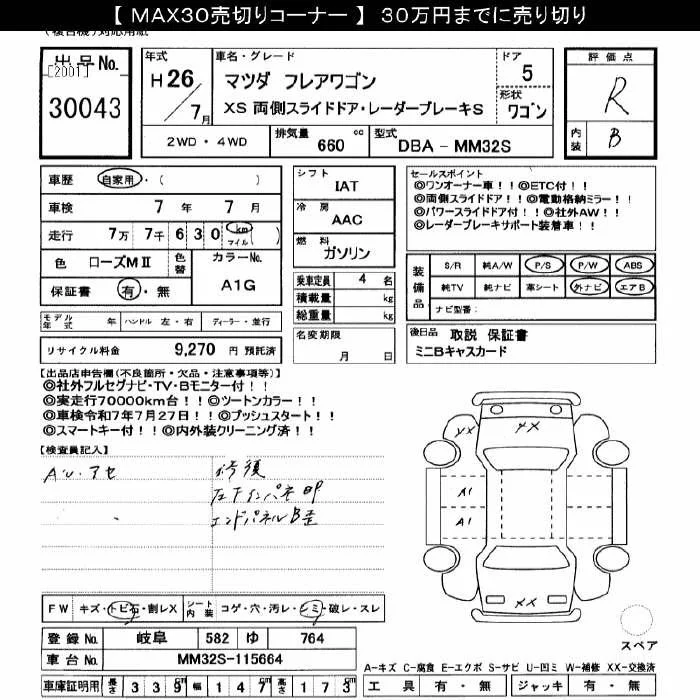 【 MAX30売切りコーナー 】 30万円までに売り切り
(複合機)対応用紙
出品No.
[2001]
30043
年式
H26/7月
車名・グレード
マツダ フレアワゴン
XS 両側スライドドア・レーダーブレーキS
ドア
5
形状
ワゴン
2WD ・ 4WD
排気量 660 cc
型式 DBA - MM32S
評価点
R
内装 B
車歴 自家用・( )
車検 7 年 7 月
走行 7万 7千 6 3 0 km マイル( )
色 ローズMⅡ 色替 カラーNo. A1G
保証書 有・無
シフト
IAT
冷房
AAC
燃料
ガソリン
乗車定員 4 名
積載量 kg
総重量 kg
名変期限
月 日
セールスポイント
◎ワンオーナー車！！◎ETC付！！
◎両側スライドドア！！◎電動格納ミラー！！
◎パワースライドドア付！！◎社外AW！！
◎レーダーブレーキサポート装着車！！
装備品
S/R 純A/W P/S P/W ABS
純TV 純ナビ 革シート 外ナビ エアB
ナビ型番:
モデル年式 年 ハンドル 左・右 ディーラー・並行
リサイクル料金 9,270 円 預託済
後日品 取説 保証書
ミニBキャスカード
【出品店申告欄(不良箇所・欠品・注意事項等)】
◎社外フルセグナビ・TV・Bモニター付！！
◎実走行70000km台！！◎ツートンカラー！！
◎車検令和7年7月27日！！◎プッシュスタート！！
◎スマートキー付！！◎内外装クリーニング済！！
【検査員記入】
AU.アセ
修須
左Fインパネ凹
エンドパネルB歪
XX
XX
A1
A1
XX
FW キズ・トビ石・割レX シート内装 コゲ・穴・汚レ・シミ・破レ・スレ
登録No. 岐阜 582 ゆ 764
車台No. MM32S-115664
車庫証明用 長さ 3 3 9 cm 幅 1 4 7 cm 高さ 1 7 3 cm
スペア
A-キズ C-腐食 E-エクボ S-サビ U-凹ミ W-補修 XX-交換済
工具 有・無 ジャッキ 有・無